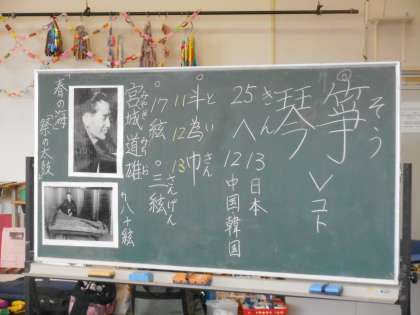 箏 そう
琴 きん
＞コト
13 日本
25〜12 中国韓国
斗為巾 と い きん
11 12 13
17絃
三絃 さんげん
宮城道雄 みやぎ みちお
八十絃
「春の海」
「祭の太鼓」